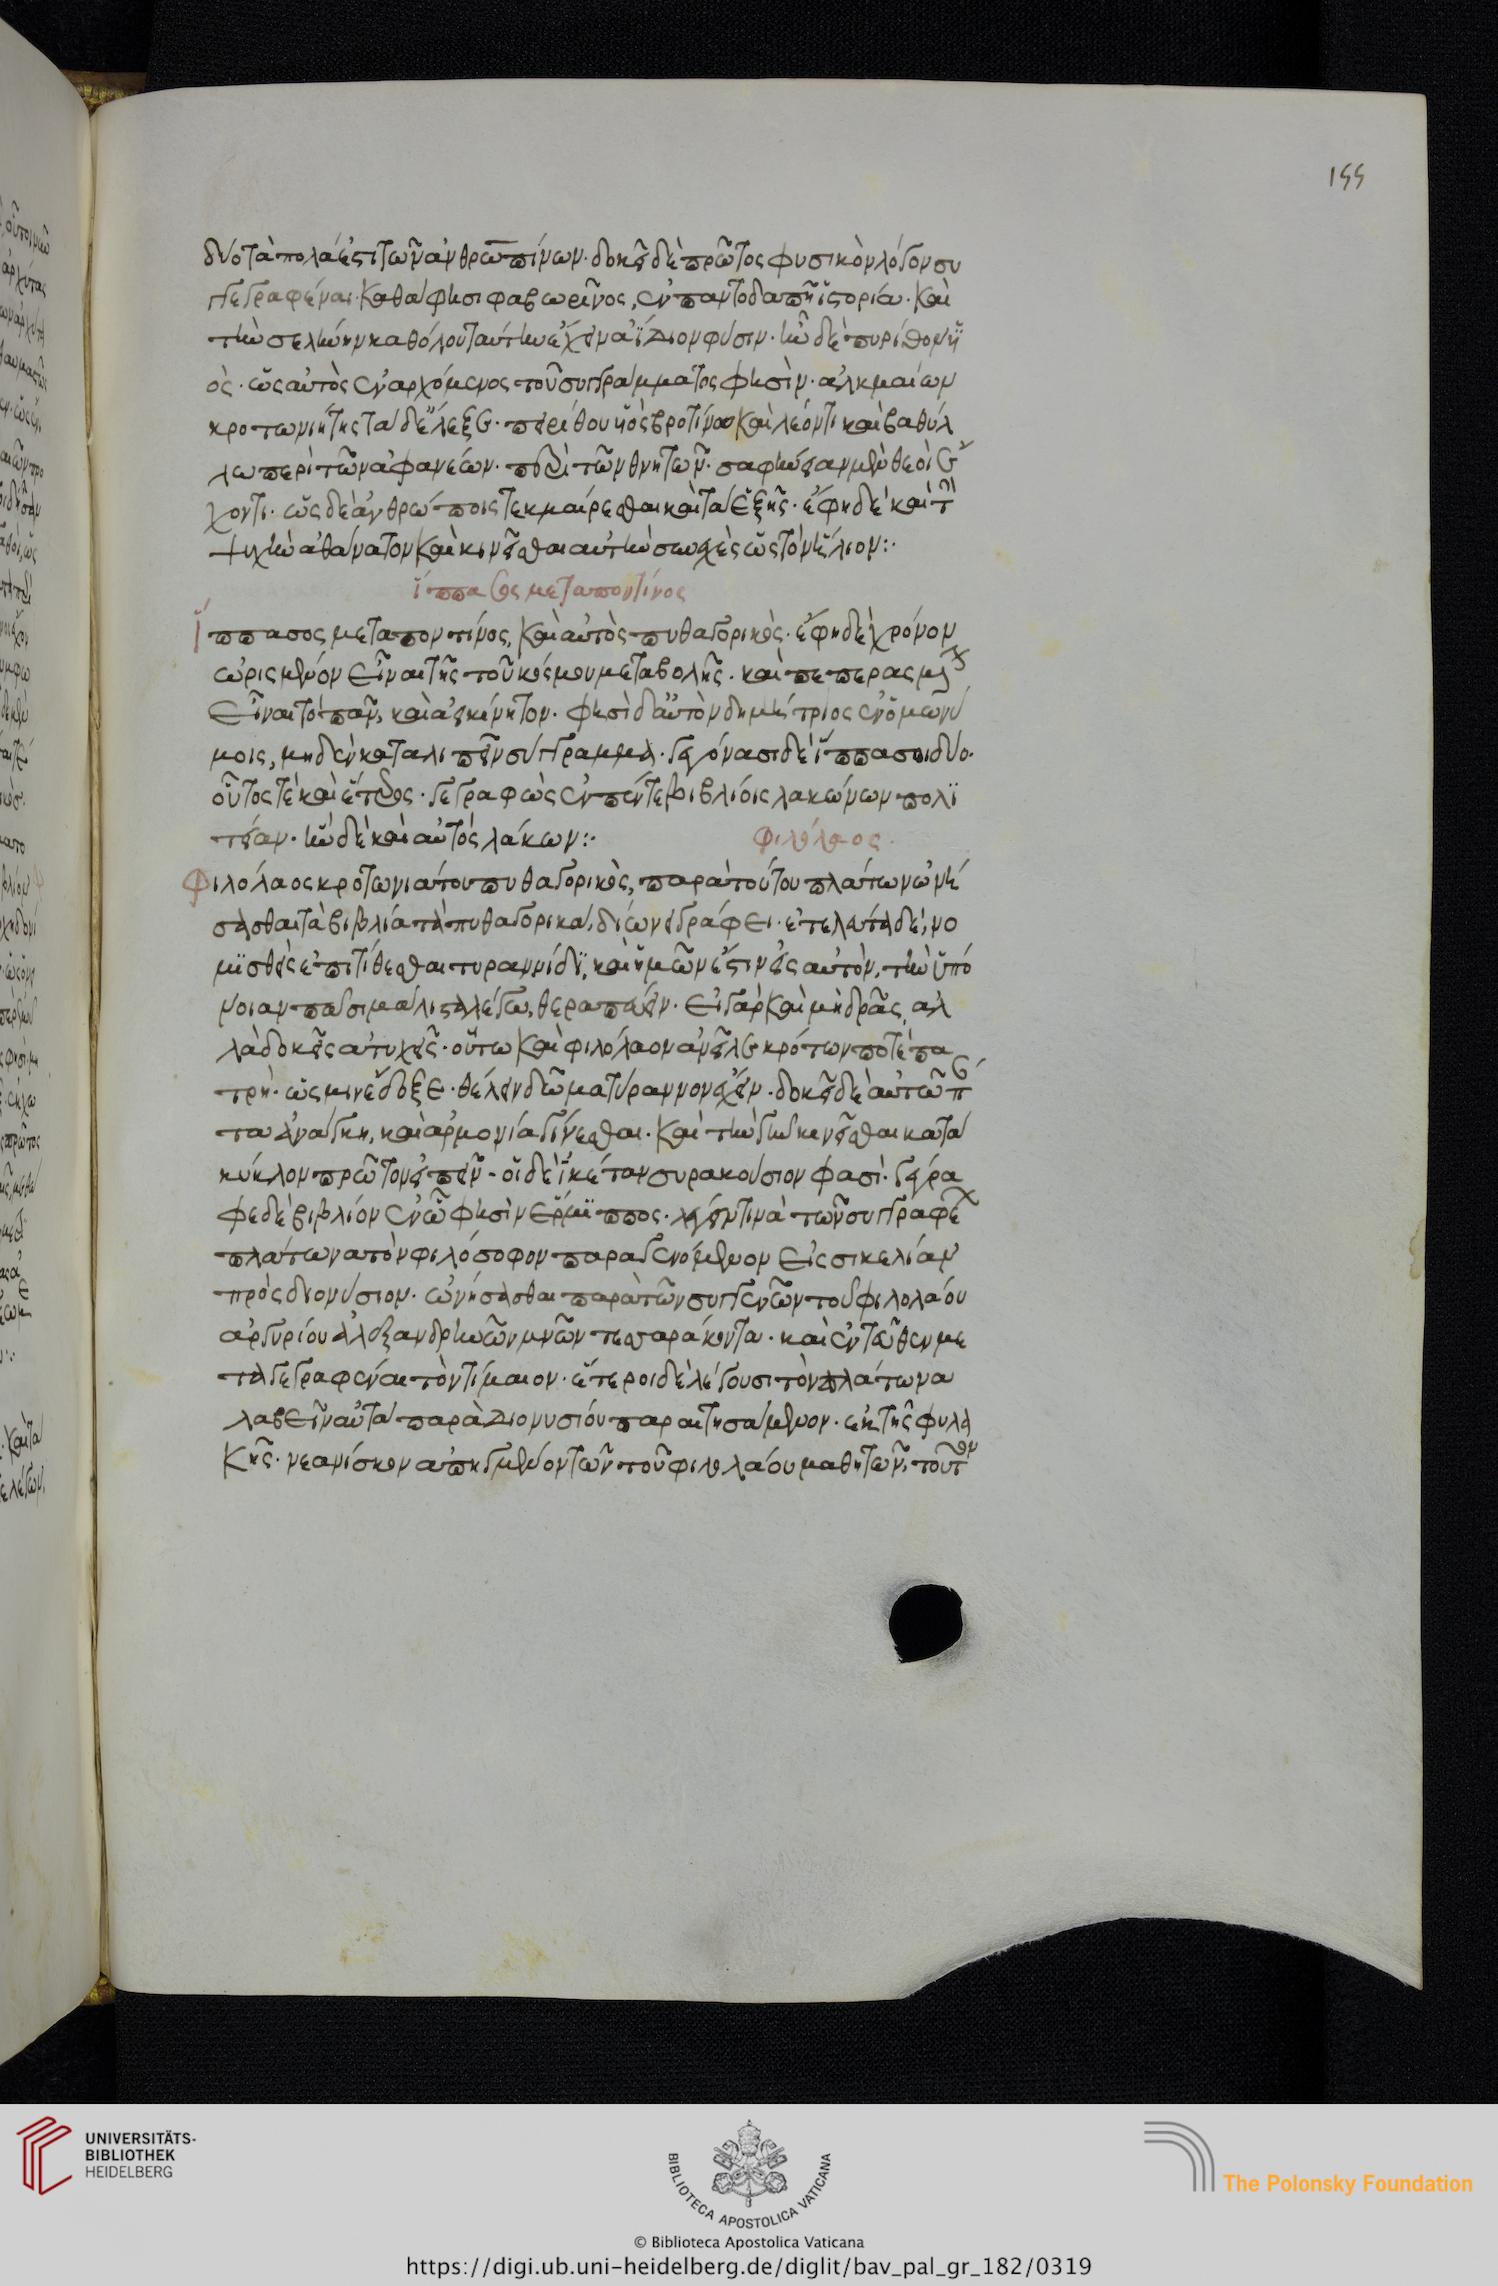 155
δύο τὰ πολλά ἐστι τῶν ἀνθρωπίνων· δοκεῖ δὲ πρῶτος φυσικὸν λόγον συγ
γεγραφέναι· καθά φησι φαβωρῖνος, ἐν παντοδαπῇ ἱστορία· καὶ
τὴν σελήνην καθόλου ταύτην ἔχειν ἀΐδιον φύσιν· ἦν δὲ πυρίθου υἱ
ός· ὡς αὐτὸς ἐναρχόμενος τοῦ συγγράμματος φησίν· ἀλκμαίων
κροτωνιήτης τάδε ἔλεξε· πειρίθου υἱὸς βροτίνω καὶ λέοντι καὶ βαθύλ
λω περὶ τῶν ἀφανέων· περὶ τῶν θνητῶν· σαφήνειαν μὲν θεοὶ ἔ
χοντι· ὡς δὲ ἀνθρώποις τεκμαίρεσθαι καὶ τὰ ἑξῆς· ἔφη δὲ καὶ τὴν
ψυχὴν ἀθάνατον καὶ κινεῖσθαι αὐτὴν συνεχὲς ὡς τὸν ἥλιον:·
ἵππασος μεταποντίνος
ἵππασος μεταποντίνος, καὶ αὐτὸς πυθαγορικός· ἔφη δὲ χρόνον
ὡρισμένον εἶναι τῆς τοῦ κόσμου μεταβολῆς· καὶ πεπερασμένον
εἶναι τὸ πᾶν, καὶ ἀεικίνητον· φησὶ δ' αὐτὸν δημήτριος ἐν ὁμωνύ
μοις, μηδὲν καταλιπεῖν σύγγραμμα· γεγόνασι δὲ ἵππασοι δύο·
οὗτός τε καὶ ἕτερος· γεγραφὼς ἐν πέντε βιβλίοις λακώνων πολι
τείαν· ἦν δὲ καὶ αὐτὸς λάκων:·
φιλόλαος·
φιλόλαος κροτωνιάτου πυθαγορικός, παρὰ τούτου πλάτων ὠνή
σασθαι τὰ βιβλία τὰ πυθαγορικά, δίωνι γράφει· ἐτελεύτα δὲ, νο
μισθεὶς ἐπιτίθεσθαι τυραννίδι, καὶ ἡμῶν ἐστιν εἰς αὐτόν, τὴν ὑπό
νοιαν πᾶσι μάλιστα λέγω, θεραπεύειν· εἰ γὰρ καὶ μὴ δρᾶς, ἀλ
λὰ δοκεῖς ἀτυχεῖς· οὕτω καὶ φιλόλαον ἀνεῖλε κρότων ποτὲ πά
τρη· ὥς μιν ἔδοξε· θέλειν δῶμα τύραννον ἔχειν· δοκεῖ δὲ αὐτῶ πάν
τα ἀνάγκη, καὶ ἁρμονία γίνεσθαι· καὶ τὴν γῆν κινεῖσθαι κατὰ
κύκλον πρῶτον εἰπεῖν· οἱ δὲ ἱκέταν συρακούσιον φασί· γέγρα
φε δὲ βιβλίον ἐν ὧ φησὶν ἕρμιππος· λέγειν τινὰ τῶν συγγραφέων
πλάτωνα τὸν φιλόσοφον παραγενόμενον εἰς σικελίαν
πρὸς διονύσιον· ὠνήσασθαι παρὰ τῶν συγγενῶν τοῦ φιλολάου
ἀργυρίου ἀλεξανδρηνῶν μνῶν τεσσαράκοντα· καὶ ἐντεῦθεν με
ταγεγραφέναι τὸν τίμαιον· ἕτεροι δὲ λέγουσι τὸν πλάτωνα
λαβεῖν αὐτὰ παρὰ διονυσίου παραιτησάμενον· ἐκ τῆς φυλα
κῆς· νεανίσκον ἀπηγμένον τῶν τοῦ φιλολάου μαθητῶν, τοῦτον
UNIVERSITÄTS-
BIBLIOTHEK
HEIDELBERG
BIBLIOTECA APOSTOLICA VATICANA
The Polonsky Foundation
© Biblioteca Apostolica Vaticana
https://digi.ub.uni-heidelberg.de/diglit/bav_pal_gr_182/0319